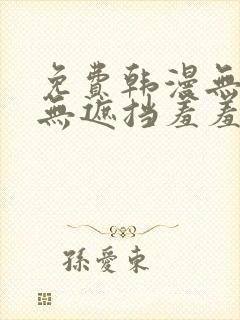 免費韩漫無
無遮挡羞羞
孫愛東